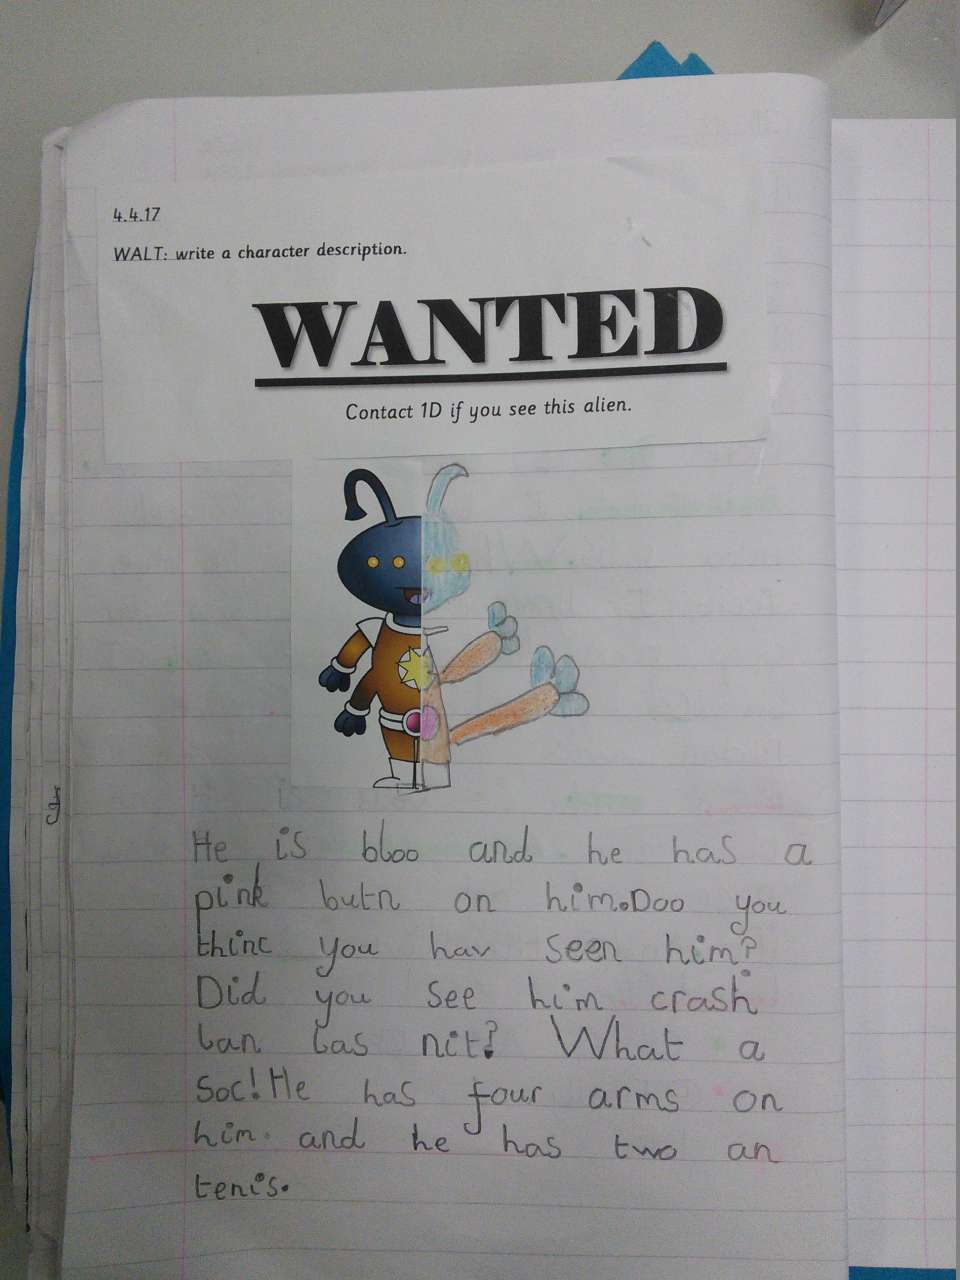 4.4.17
WALT: write a character description.
WANTED
Contact 1D if you see this alien.
He is bloo and he has a
pink butn on him.Doo you
thinc you hav seen him?
Did you see him crash
lan las nit? What a
soc! He has four arms on
him. and he has two an
tenis.